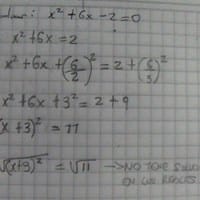 x² + 6x - 2 = 0
x² + 6x = 2
x² + 6x + (6/2)² = 2 + (6/3)²
x² + 6x + 3² = 2 + 9
(x + 3)² = 11
√(x+9)² = √11 → NO